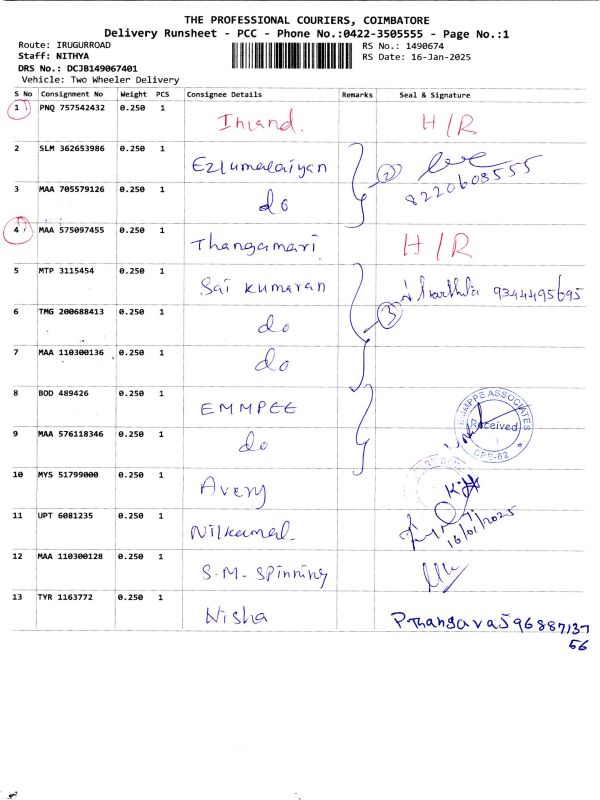 THE PROFESSIONAL COURIERS, COIMBATORE
Delivery Runsheet - PCC - Phone No.:0422-3505555 - Page No.:1
Route: IRUGURROAD
RS No.: 1490674
Staff: NITHYA
RS Date: 16-Jan-2025
DRS No.: DCJB149067401
Vehicle: Two Wheeler Delivery
S No Consignment No Weight PCS Consignee Details Remarks Seal & Signature
1 PNQ 757542432 0.250 1 Inland. H/R
2 SLM 362653986 0.250 1 Ezlumalaiyan 2 8220603555
3 MAA 705579126 0.250 1 do
4 MAA 575097455 0.250 1 Thangamari H/R
5 MTP 3115454 0.250 1 Sai kumaran 9344495695
6 TMG 200688413 0.250 1 do 3
7 MAA 110300136 0.250 1 do
8 BOD 489426 0.250 1 EMMPEE
9 MAA 576118346 0.250 1 do Received
10 MYS 51799000 0.250 1 Avery
11 UPT 6081235 0.250 1 Nilkamal. 16/01/2025
12 MAA 110300128 0.250 1 S.M. Spinning
13 TYR 1163772 0.250 1 Nisha PThangavaJ 96887137
56